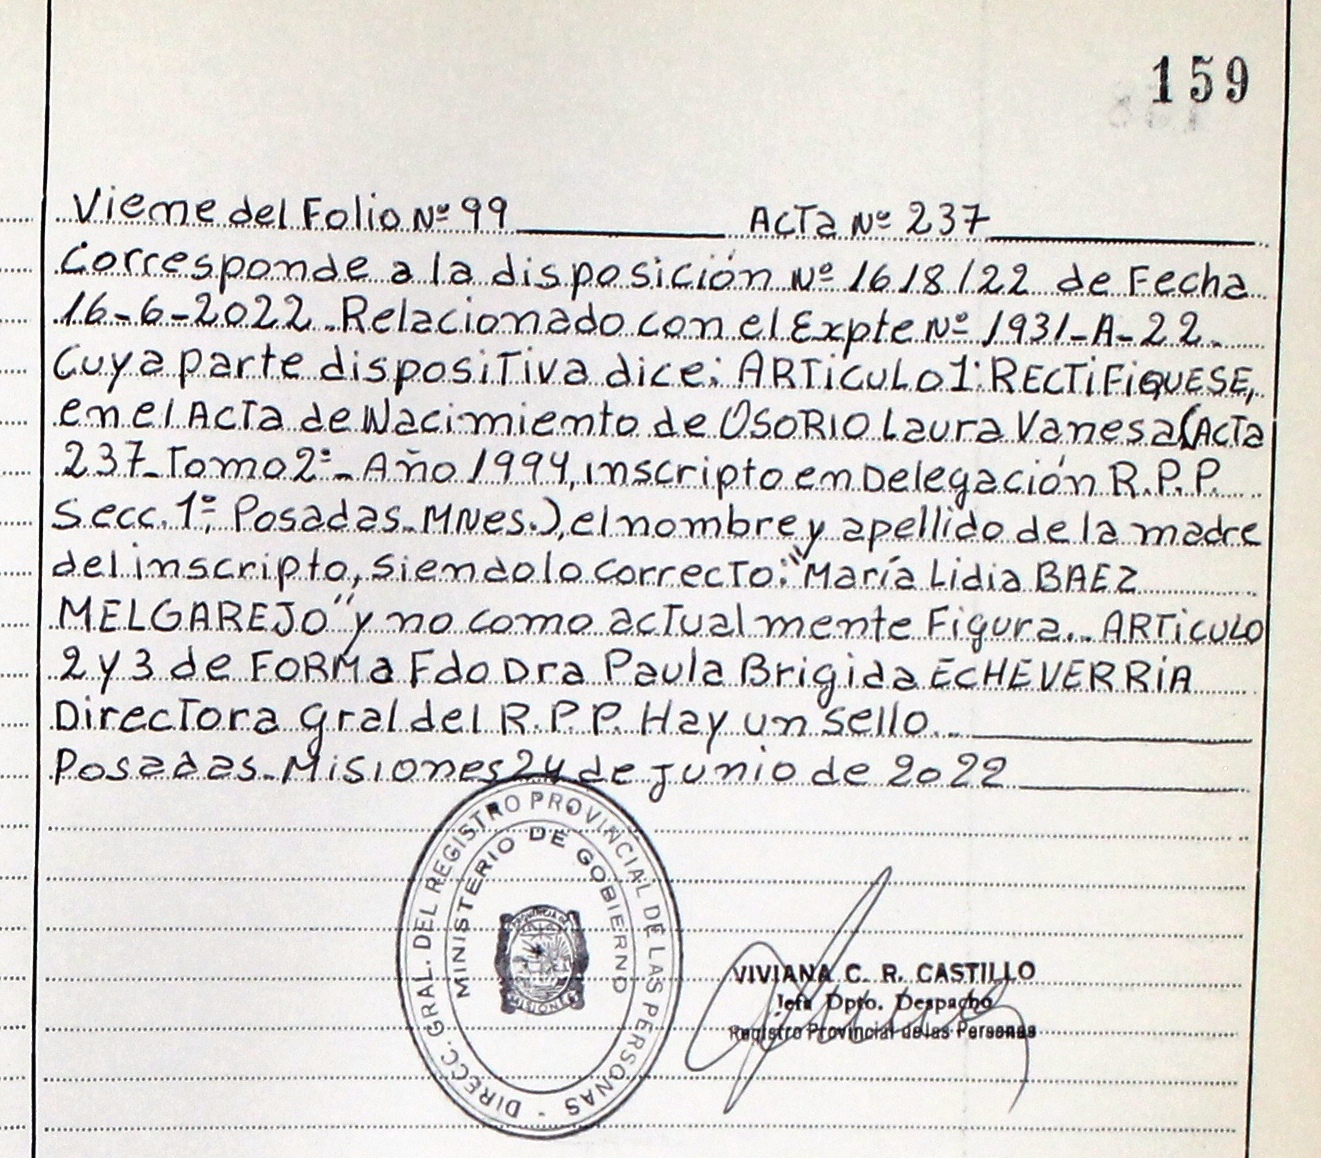 159
Vieme del Folio Nº 99 ACTA Nº 237
Corresponde a la disposición Nº 1618/22 de Fecha
16-6-2022. Relacionado con el Expte Nº 1931-A-22.
Cuya parte dispositiva dice: ARTICULO 1º RECTIFIQUESE,
en el ACTA de Nacimiento de OSORIO Laura Vanesa (ACTA
237-Tomo 2º- Año 1994, inscripto en Delegación R.P.P.
Secc. 1º, Posadas-MNes.), el nombre y apellido de la madre
del inscripto, siendo lo correcto: "María Lidia BAEZ
MELGAREJO" y no como actualmente Figura.. ARTICULO
2 y 3 de FORMA Fdo Dra Paula Brigida ECHEVERRIA
Directora Gral del R.P.P. Hay un sello..
Posadas-Misiones 24 de junio de 2022
DIRECC. GRAL. DEL REGISTRO PROVINCIAL DE LAS PERSONAS -
MINISTERIO DE GOBIERNO
PROVINCIA DE
MISIONES
VIVIANA C. R. CASTILLO
Jefa Dpto. Despacho
Registro Provincial de las Personas